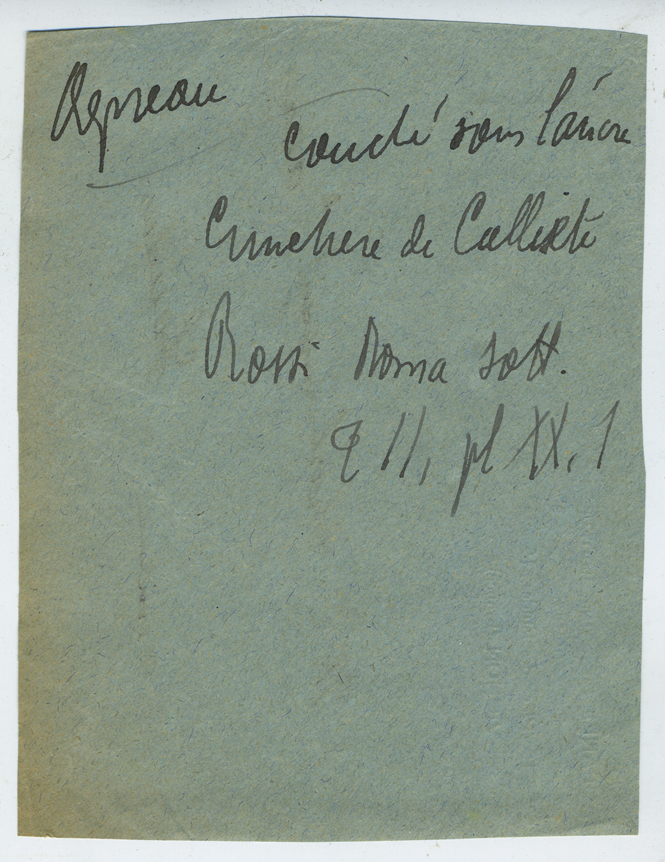 Agneau
couché sous l'ancre
Cimetiere de Calliste
Rossi Roma sott.
T II, pl XX, 1